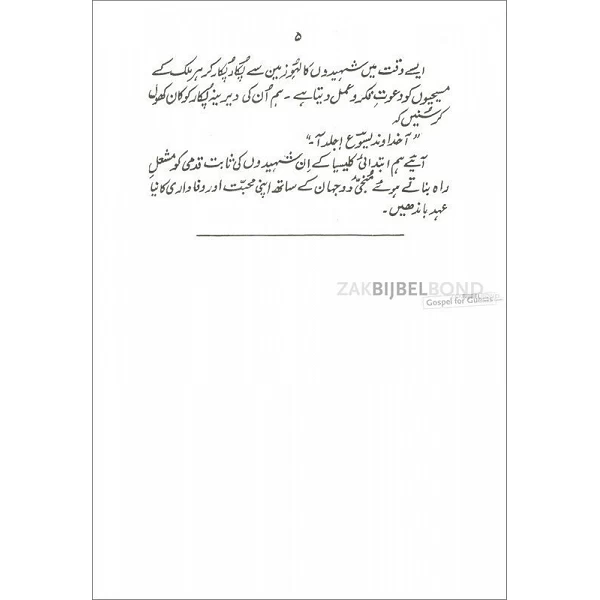 ۵
ایسے وقت میں شہیدوں کا لہُو زمین سے پُکار پُکار کر ہر ملک کے
مسیحیوں کو دعوتِ فکر و عمل دیتا ہے۔ ہم اُن کی دیرینہ پُکار کو کان کھول
کر سُنیں کہ
”آ خداوند یسوع! جلد آ۔“
آئیے ہم ابتدائی کلیسیا کے اِن شہیدوں کی ثابت قدمی کو مشعلِ
راہ بناتے ہوئے مُنجّیِ دو جہان کے ساتھ اپنی محبّت اور وفاداری کا نیا
عہد باندھیں۔
ZAKBIJBELBOND
Gospel for Guests